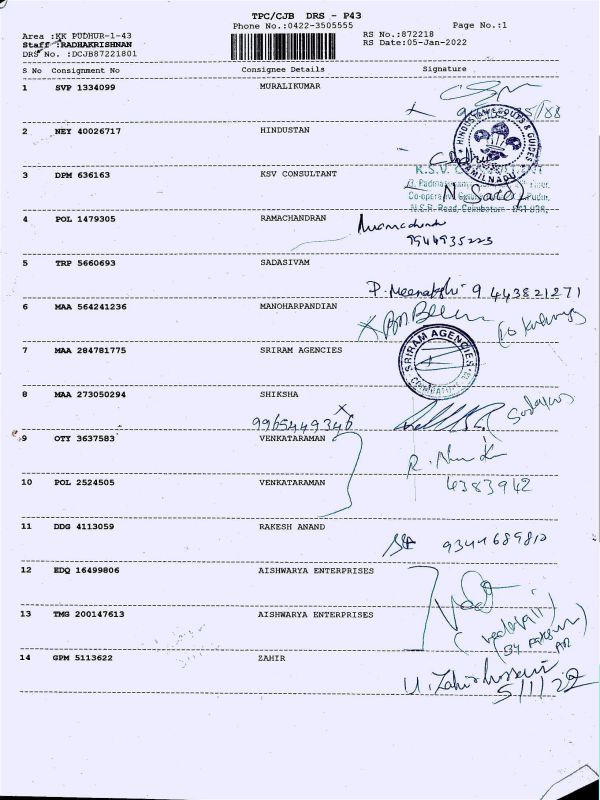 TPC/CJB DRS - P43
Phone No.:0422-3505555
Page No.:1
Area :KK PUDHUR-1-43
RS No.:872218
Staff :RADHAKRISHNAN
RS Date:05-Jan-2022
DRS No. :DCJB87221801
S No Consignment No Consignee Details Signature
1 SVP 1334099 MURALIKUMAR
2 NEY 40026717 HINDUSTAN
HINDUSTAN SCOUTS & GUIDES
TAMILNADU
3 DPM 636163 KSV CONSULTANT
K.S.V.
N.S.R. Road, Coimbatore
4 POL 1479305 RAMACHANDRAN
Ramachandran
9944935223
5 TRP 5660693 SADASIVAM
P. Meenakshi 9443821271
6 MAA 564241236 MANOHARPANDIAN
7 MAA 284781775 SRIRAM AGENCIES
SRIRAM AGENCIES
8 MAA 273050294 SHIKSHA
9965449346
9 OTY 3637583 VENKATARAMAN
10 POL 2524505 VENKATARAMAN
6383942
11 DDG 4113059 RAKESH ANAND
9344689810
12 EDQ 16499806 AISHWARYA ENTERPRISES
13 TMG 200147613 AISHWARYA ENTERPRISES
14 GPM 5113622 ZAHIR
U. Zahir hussain
5/1/22